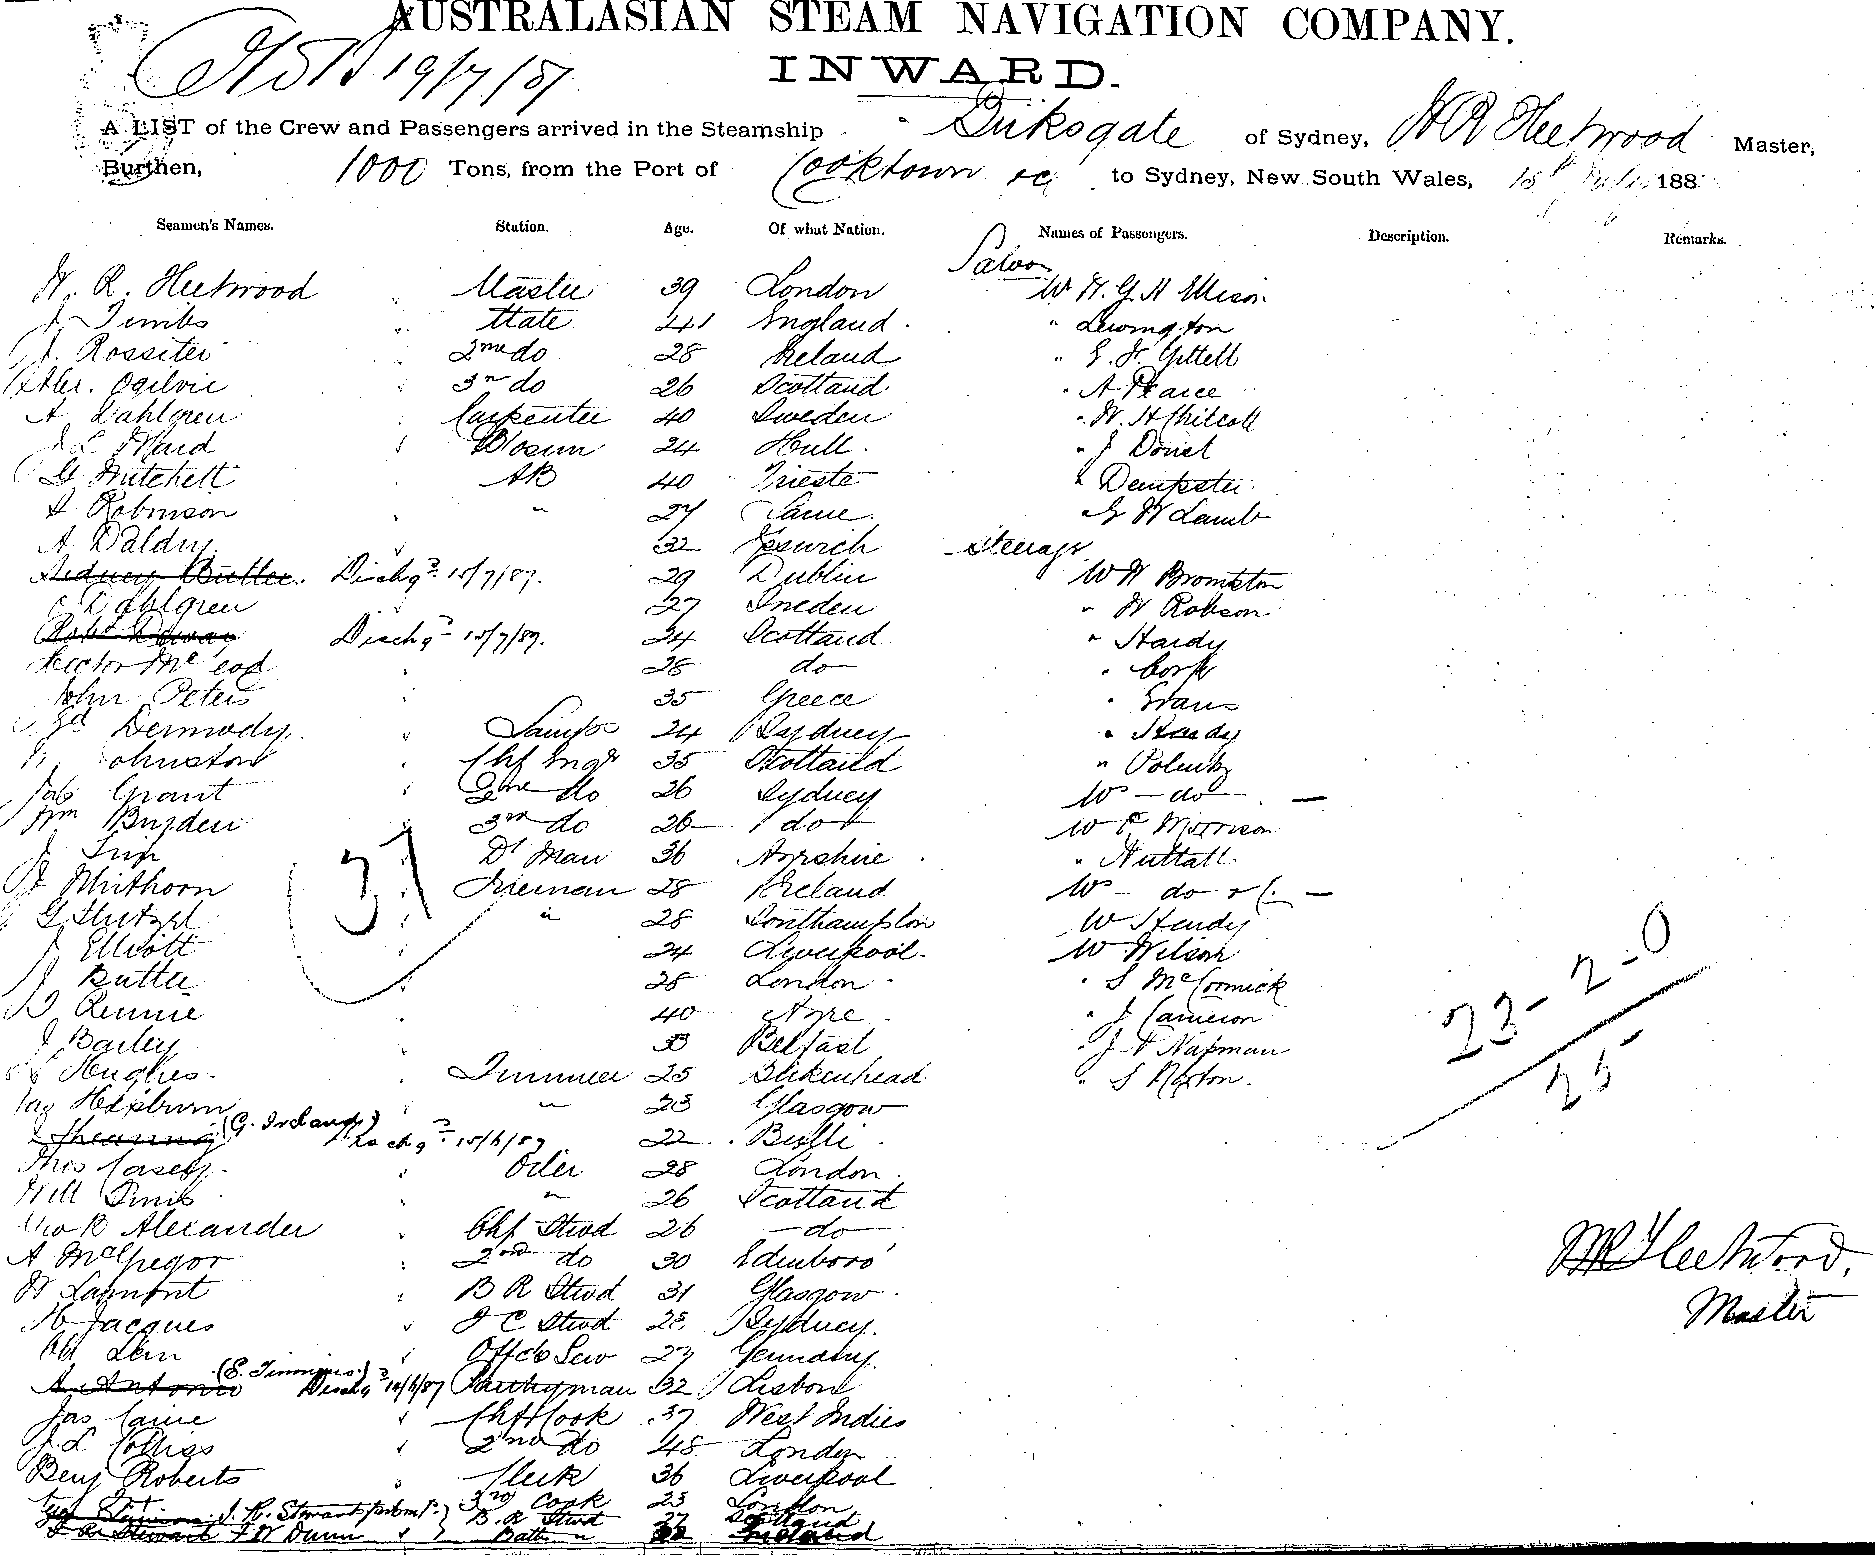 AUSTRALASIAN STEAM NAVIGATION COMPANY.
19/7/87
INWARD.
A LIST of the Crew and Passengers arrived in the Steamship of Sydney, W R Fleetwood Master,
Burthen, 1000 Tons, from the Port of Cooktown &c to Sydney, New South Wales, 18th July 188
Seamen's Names. Station. Age. Of what Nation. Names of Passengers. Description. Remarks.
Saloon
W. R. Fleetwood Master 39 London W H. G. H Ellison
J Timbs Mate 41 England " Lewington
J. Rossiter 2nd do 28 Ireland "
Alex. Ogilvie 3rd do 26 Scotland " A Pearce
A Dahlgren Carpenter 40 Sweden " W. H Chilcott
J L Ward Bosun 24 Hull "
G Mitchell AB 40 Trieste " Dempster
Robinson " 27 Same " G W Lamb
A Daldry 32 Ipswich Steerage
Sidney Butler Dischgd 15/7/87. 29 Dublin W H Brompton
C Dahlgren 27 Sweden " W Robson
Robt Dischgd 15/7/87. 24 Scotland " Hardy
Hector McLeod 28 do "
John Peters 35 Greece " Evans
Dermody Lamps 24 Sydney " Hardy
Johnston Chf Engr 35 Scotland "
Jas Grant 2nd do 26 Sydney W — do —
Wm Burden 3rd do 26 do W C Morrison
J D1 Man 36 Ayrshire " Nuttall
J Whithorn Fireman 28 Ireland W — do & C. —
G " 28 Southampton W Hardy
37
J Elliott 24 Liverpool W Wilson
J Butler 28 London " S McCormick
D Rennie 40 Ayre " J Cameron
J Bailey 33 Belfast " J Napman
Hughes Trimmer 25 Birkenhead " S Norton.
23-2-0
25
Jas Hepburn " 23 Glasgow
(G. Ireland)
Dischgd 15/6/87 22 Bulli
Thos Casely Oiler 28 London
Will Timbs " 26 Scotland
Geo R Alexander Chf Stwd 26 do
A McGregor 2nd do 30 Edenboro'
W Lamont B R Stwd 31 Glasgow
Jacques F C Stwd 28 Sydney.
Offcs Serv 27 Germany
(E. Timmins)
A. Antonio Dischgd 15/6/87 Pantryman 32 Lisbon
Jas Caine Chf Cook 37 West Indies
J. L 2nd do 48 London
Benj Roberts Clerk 36 Liverpool
J. R. Stewart 3rd Cook 23 London
B. R Stwd 27 Scotland
J R Stewart F W Dunn Ireland
W R Fleetwood,
Master